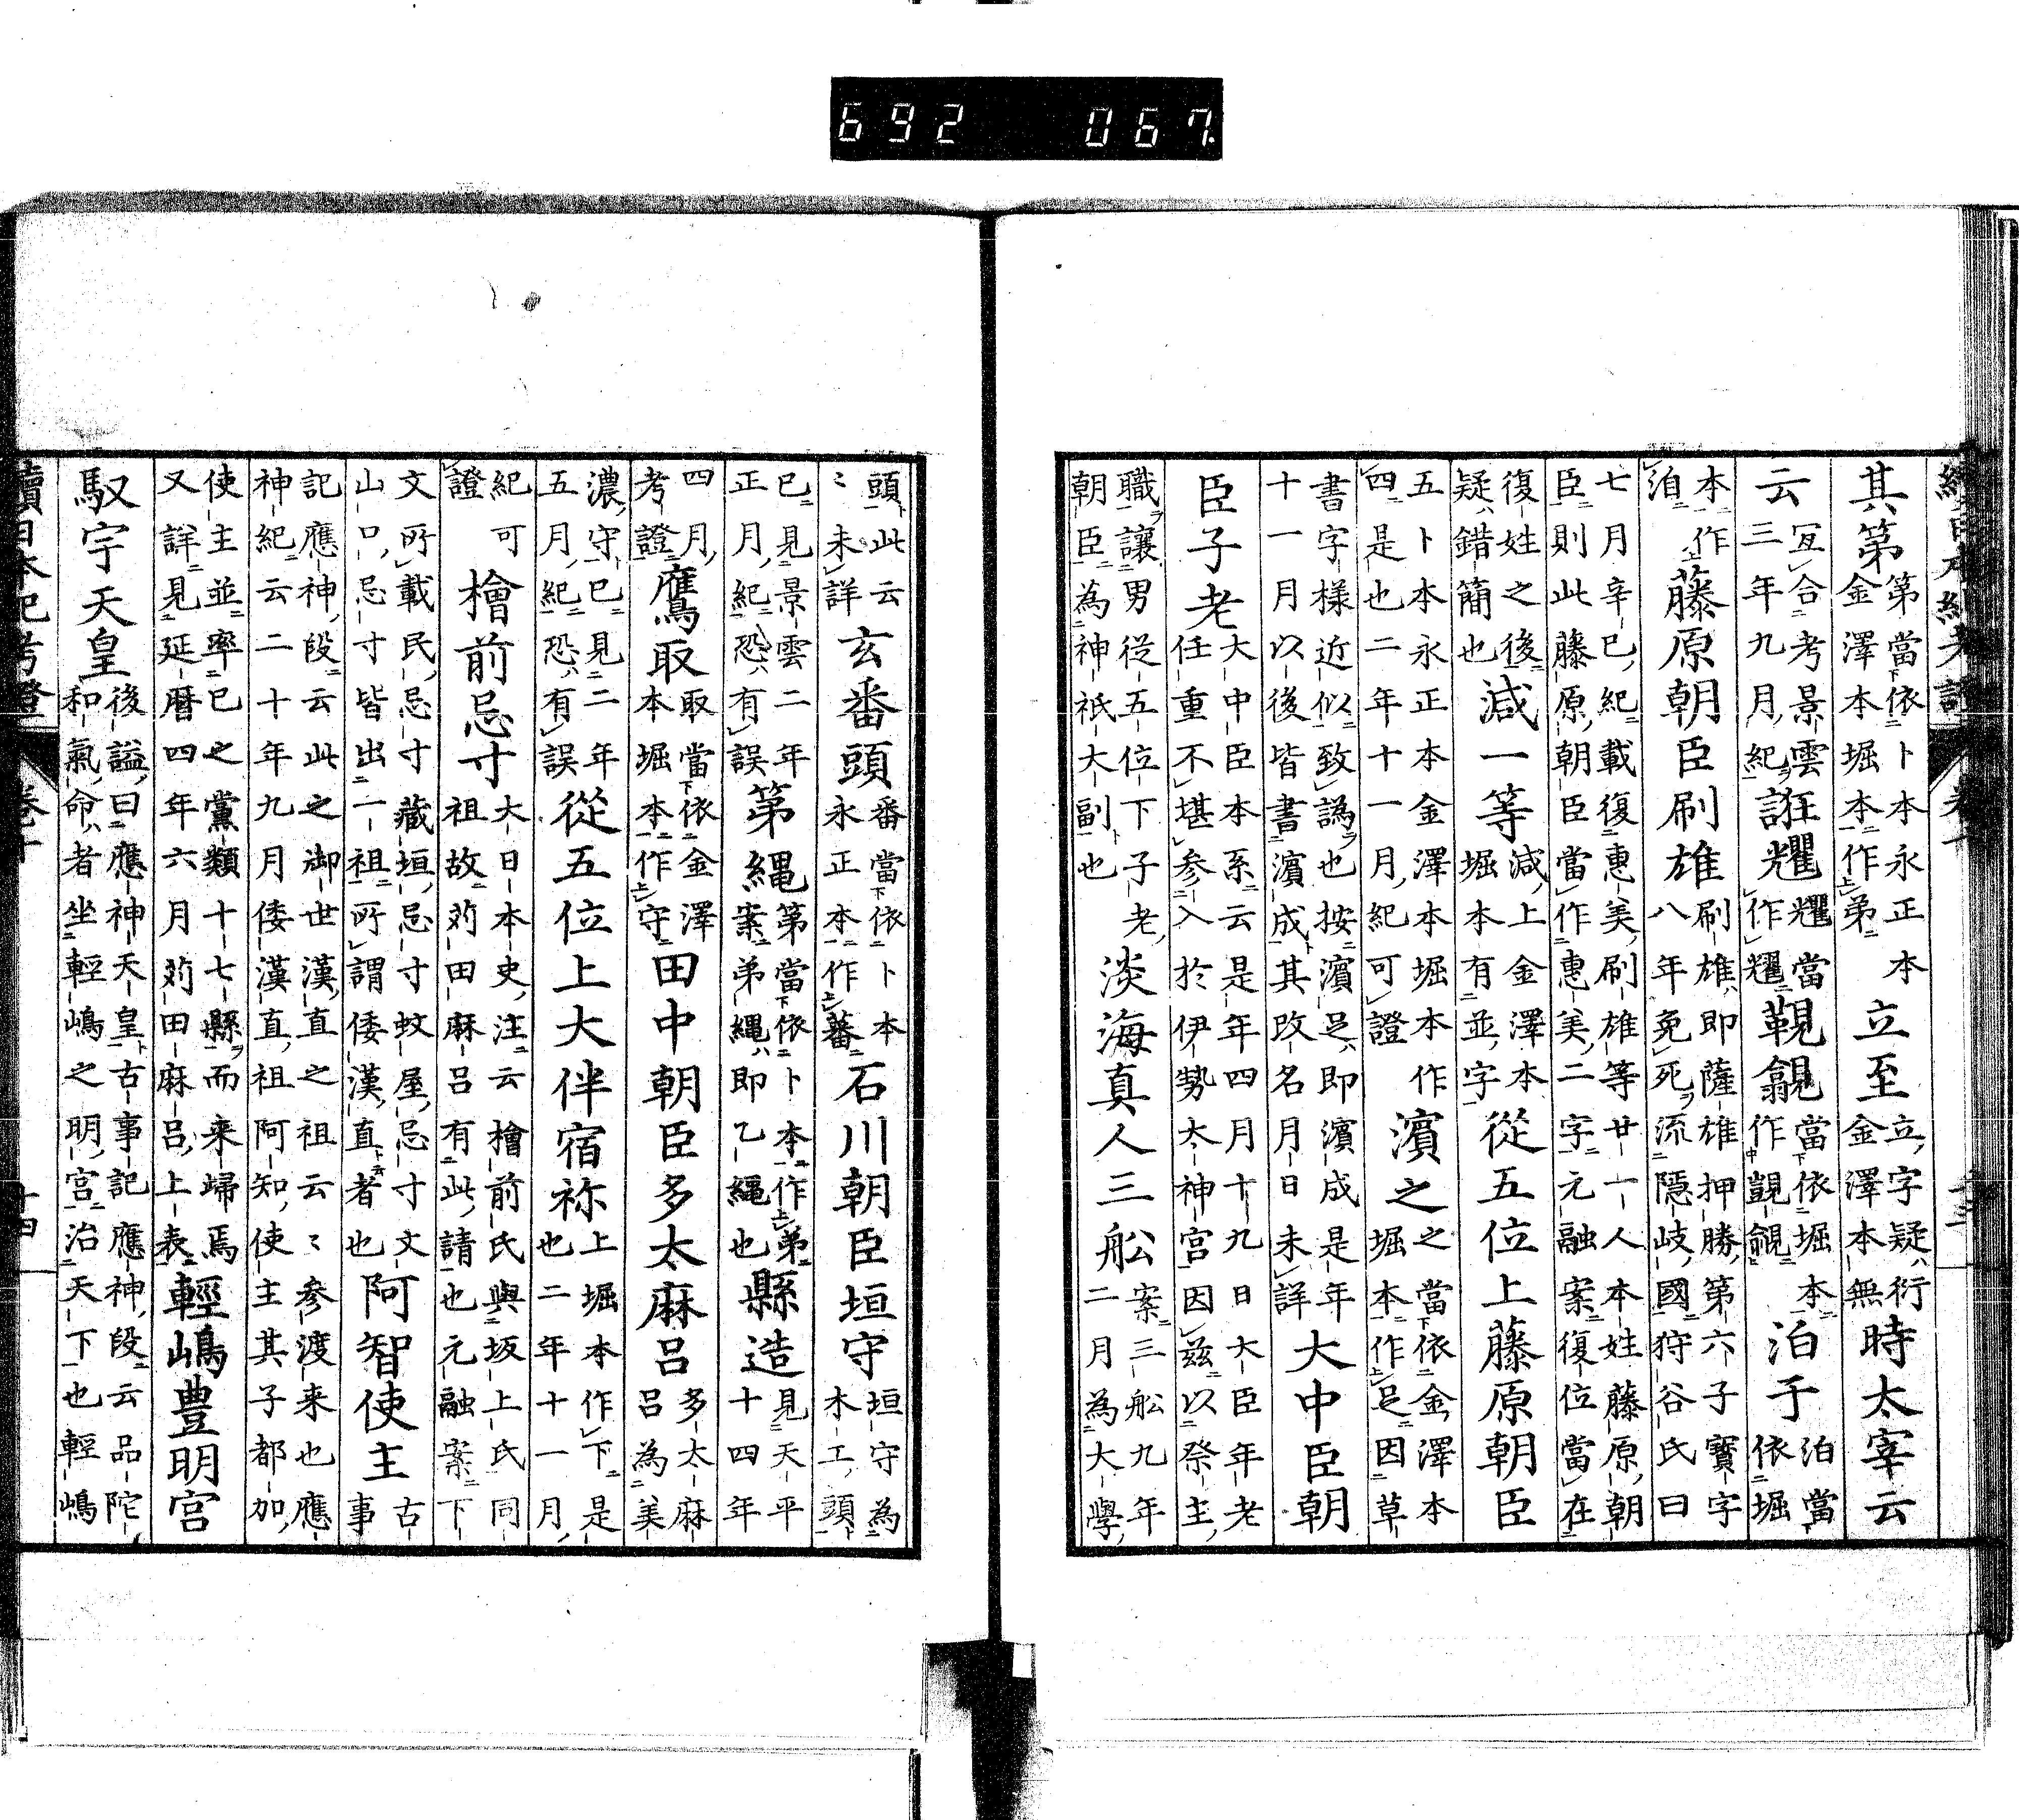 692 067
續日本紀考證 卷十 十三
其第 第當依卜本永正本
金澤本堀本作弟 立至 立字疑衍
金澤本無 時太宰云
云 冝合考景雲
三年九月紀 誑耀 耀當
作耀 覲覦 當依堀本
作覬覦 泊于 泊當
依堀
本作
洎 藤原朝臣刷雄 刷雄即薩雄押勝第六子寶字
八年免死流隱岐國狩谷氏曰
七月辛巳紀載復惠美刷雄等廿一人本姓藤原朝
臣則此藤原朝臣當作惠美二字元融案復位當在
復姓之後
疑錯簡也 減一等 減上金澤本
堀本有並字 從五位上藤原朝臣
五卜本永正本金澤本堀本作
四是也二年十一月紀可證 濱之 之當依金澤本
堀本作足因草
書字樣近似致譌也按濱足即濱成是年
十一月以後皆書濱成其改名月日未詳 大中臣朝
臣子老 大中臣本系云是年四月十九日大臣年老
任重不堪參入於伊勢太神宮因茲以祭主
職讓男從五位下子老
朝臣為神祇大副也 淡海真人三船 案三船九年
二月為大學
頭此云
〻未詳 玄番頭 番當依卜本
永正本作蕃 石川朝臣垣守 垣守為
木工頭
已見景雲二年
正月紀恐有誤 第縄 第當依卜本作弟
案弟縄即乙縄也 縣造 見天平
十四年
四月
考證 鷹取 取當依金澤
本堀本作守 田中朝臣多太麻呂 多太麻
呂為美
濃守已見二年
五月紀恐有誤 從五位上大伴宿祢 上堀本作下是
也二年十一月
紀可
證 檜前忌寸 大日本史注云檜前氏與坂上氏同
祖故苅田麻呂有此請也元融案下
文所載民忌寸藏垣忌寸蚊屋忌寸文
山口忌寸皆出一祖所謂倭漢直者也 阿智使主 古
事
記應神段云此之御世漢直之祖云〻參渡来也應
神紀云二十年九月倭漢直祖阿知使主其子都加
使主並率已之黨類十七縣而来歸焉
又詳見延暦四年六月苅田麻呂上表 輕嶋豊明宮
馭宇天皇 後謚曰應神天皇古事記應神段云品陀
和氣命者坐輕嶋之明宮治天下也輕嶋
續日本紀考證 卷十 十四